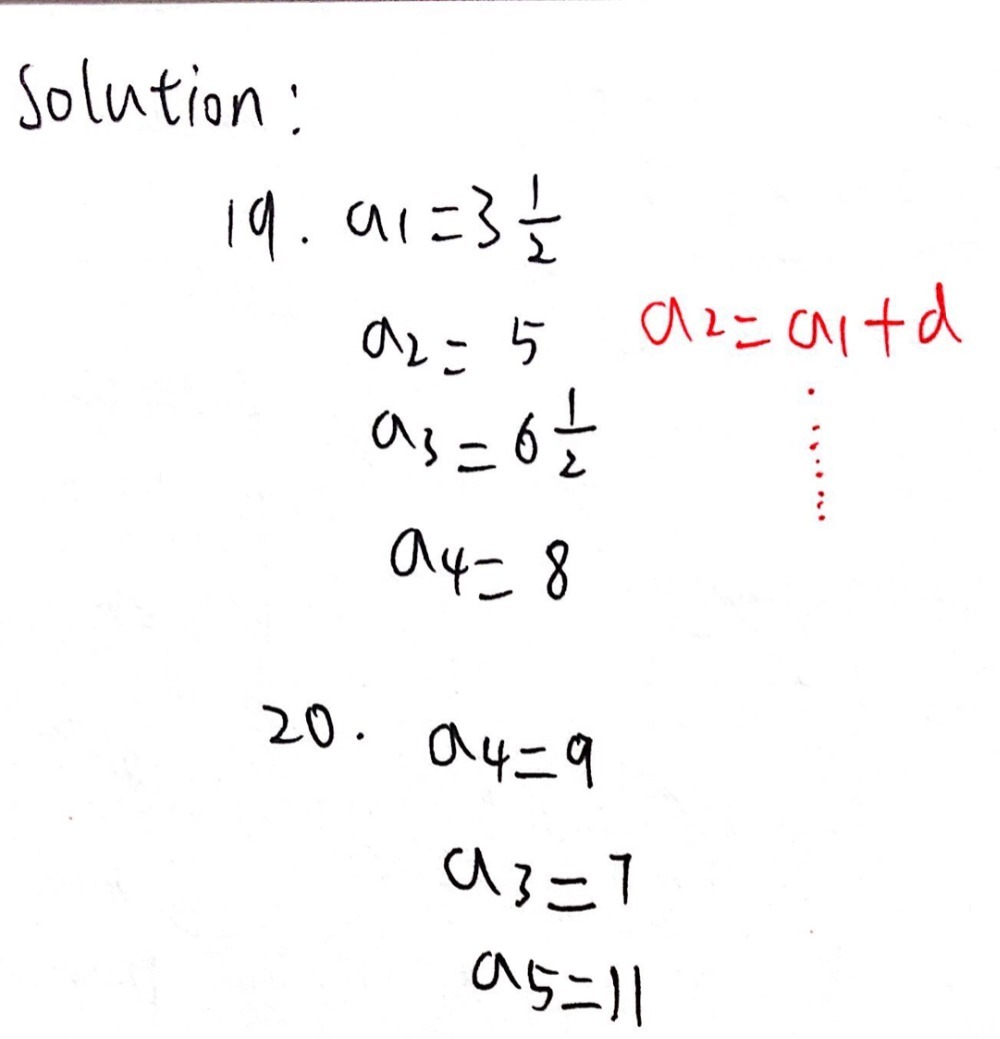 Solution:
19. a1=3 1/2
a2= 5 a2=a1+d
............
a3=6 1/2
a4= 8
20. a4=9
a3=7
a5=11